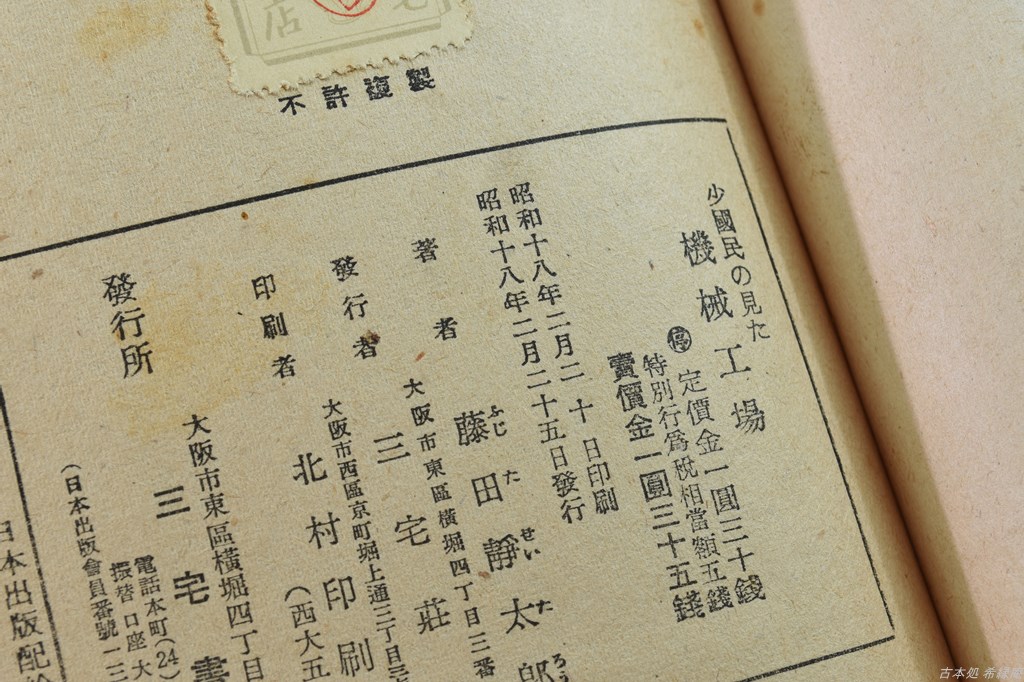 店
不許複製
少國民の見た
機械工場
停 定價金一圓三十錢
特別行爲稅相當額五錢
賣價金一圓三十五錢
昭和十八年二月二十日印刷
昭和十八年二月二十五日發行
著者 藤田靜太郎
ふじ た せい た ろう
大阪市東區橫堀四丁目三番
發行者 三宅莊
大阪市西區京町堀上通三丁目
印刷者 北村印刷
(西大五
大阪市東區橫堀四丁目
發行所 三宅書
電話本町(24)
振替口座大
(日本出版會員番號一二
日本出版配給
古本処